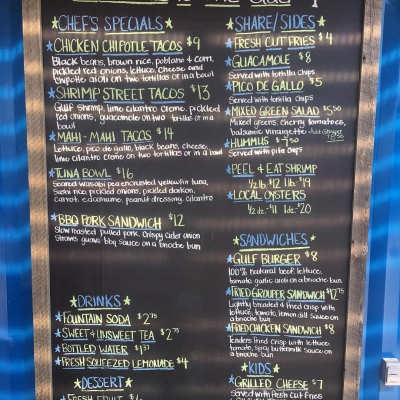 CHEF'S SPECIALS
CHICKEN CHIPOTLE TACOS $9
Black beans, brown rice, poblano & corn,
pickled red onions, lettuce, cheese and
chipotle aioli on two tortillas or in a bowl
SHRIMP STREET TACOS $13
Gulf shrimp, lime cilantro creme, pickled
red onions, guacamole on two tortillas
or in a bowl
MAHI-MAHI TACOS $14
Lettuce, pico de gallo, black beans, cheese,
lime cilantro creme on two tortillas or in a bowl
TUNA BOWL $16
Seared wasabi pea encrusted yellowfin tuna,
Sushi rice, pickled onions, pickled daikon,
Carrot, edamame, peanut dressing, cilantro
BBQ PORK SANDWICH $12
Slow roasted pulled pork, crispy cider onion
straws guava bbq sauce on a brioche bun
DRINKS
FOUNTAIN SODA $2.75
SWEET & UNSWEET TEA $2.75
BOTTLED WATER
FRESH SQUEEZED LEMONADE $4
DESSERT
SHARE/SIDES
FRESH CUT FRIES $4
GUACAMOLE $8
Served with tortilla chips
PICO DE GALLO $5
Served with tortilla chips
MIXED GREEN SALAD $5.50
Mixed greens, cherry tomatoes,
balsamic vinaigrette
HUMMUS
Served with pita chips
PEEL & EAT SHRIMP
1/2 lb. $12 1 lb. $19
LOCAL OYSTERS
1/2 dz. $11 1dz. $20
SANDWICHES
GULF BURGER $8
100% natural beef, lettuce,
tomato, garlic aioli on a brioche bun
FRIED GROUPER SANDWICH $12.75
Lightly breaded & fried crisp with
lettuce, tomato, lemon dill sauce on
a brioche bun
FRIED CHICKEN SANDWICH $8
Tenders fried crisp with lettuce,
tomato, spicy buttermilk sauce on
a brioche bun
KIDS
GRILLED CHEESE $7
Served with Fresh Cut Fries